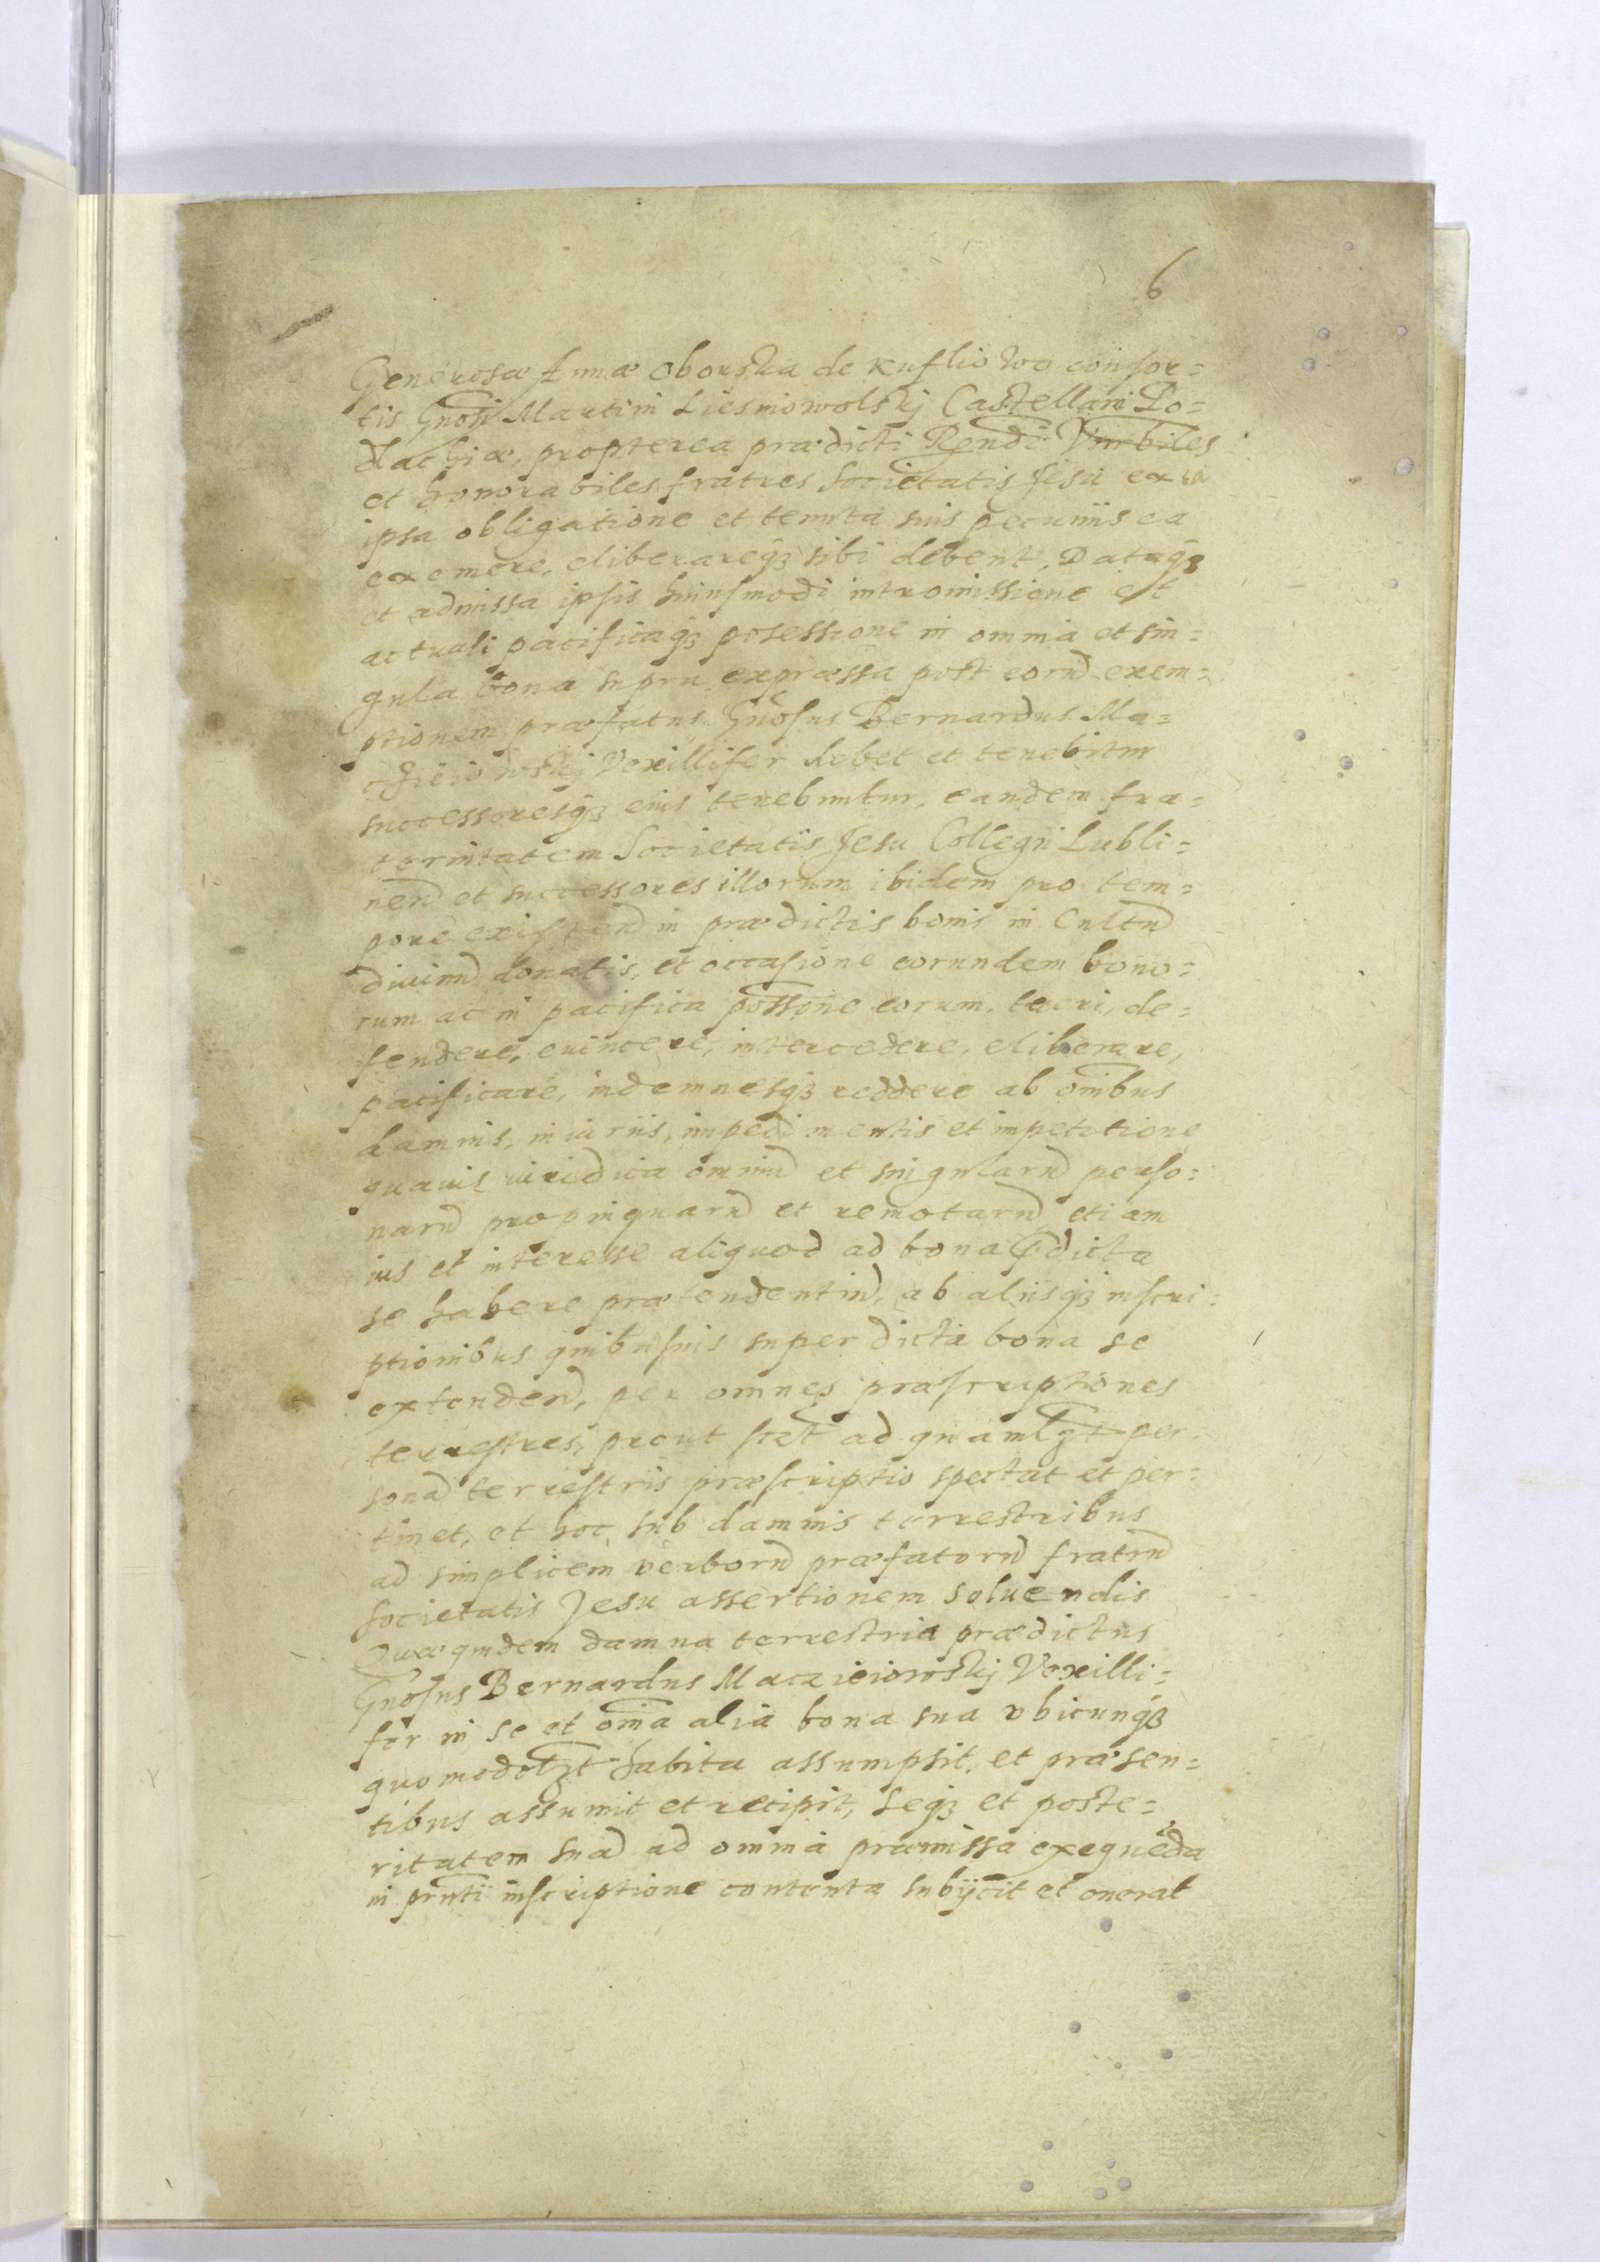 6
Generosæ Annæ Oborska de Kuflio wo consor=
tis Gnosi Martini Liesniowolskj Castellani Po=
dlachiæ, propterea prædicti Rendi Vnrbiles
et honorabiles fratres Societatis Jesu ex
ipsa obligatione et tenuta suis pecuniis ea
exemere, eliberareqȝ sibi debent, Dataqȝ
et admissa ipsis huiusmodi intromissione et
actuali pacificaqȝ posessione in omnia et sin=
gula bona supra expressa post eorũ exem=
ptionem præfatus Gnosus Bernardus Ma=
cieiowskj Vexillifer debet et tenebitur
successoresqȝ eius tenebuntur, eandem fra=
ternitatem Societatis Jesu Collegii Lubli=
neñ et successores illorum ibidem pro tem=
pore existeñ in prædictis bonis in Cultũ
diuinũ donatis, et occasione eorundem bono=
rum ac in pacifica possone eorum, tueri, de=
fendere, euincere, intercedere, eliberare,
pacificare, indemnesqȝ reddere ab omibus
damnis, iniuriis, impedimentis et impetitione
quauis iuridica omniũ et singularũ perso=
narũ propinquarũ et remotarũ etiam
ius et interesse aliquod ad bona pdicta
se habere prætendentiũ, ab aliisqȝ inscri=
ptionibus quibusuis super dicta bona se
extendeñ, per omnes præscriptiones
terrestres, prout scet ad quamlzt per=
sonã terrestris præscriptio spectat et per=
tinet, et hoc sub damnis terrestribus
ad simplicem verborũ præfatorũ fratrũ
Societatis Jesu assertionem soluendis
Quæquidem damna terrestria prædictus
Gnosus Bernardus Maczieiowskj Vexilli=
fer in se et oina alia bona sua vbicunqȝ
quomodolzt habita assumpsit, et præsen=
tibus assumit et recipit, seqȝ et poste=
ritatem suã ad omnia præmissa exequẽda
in pnti inscriptione contenta subijcit et onerat